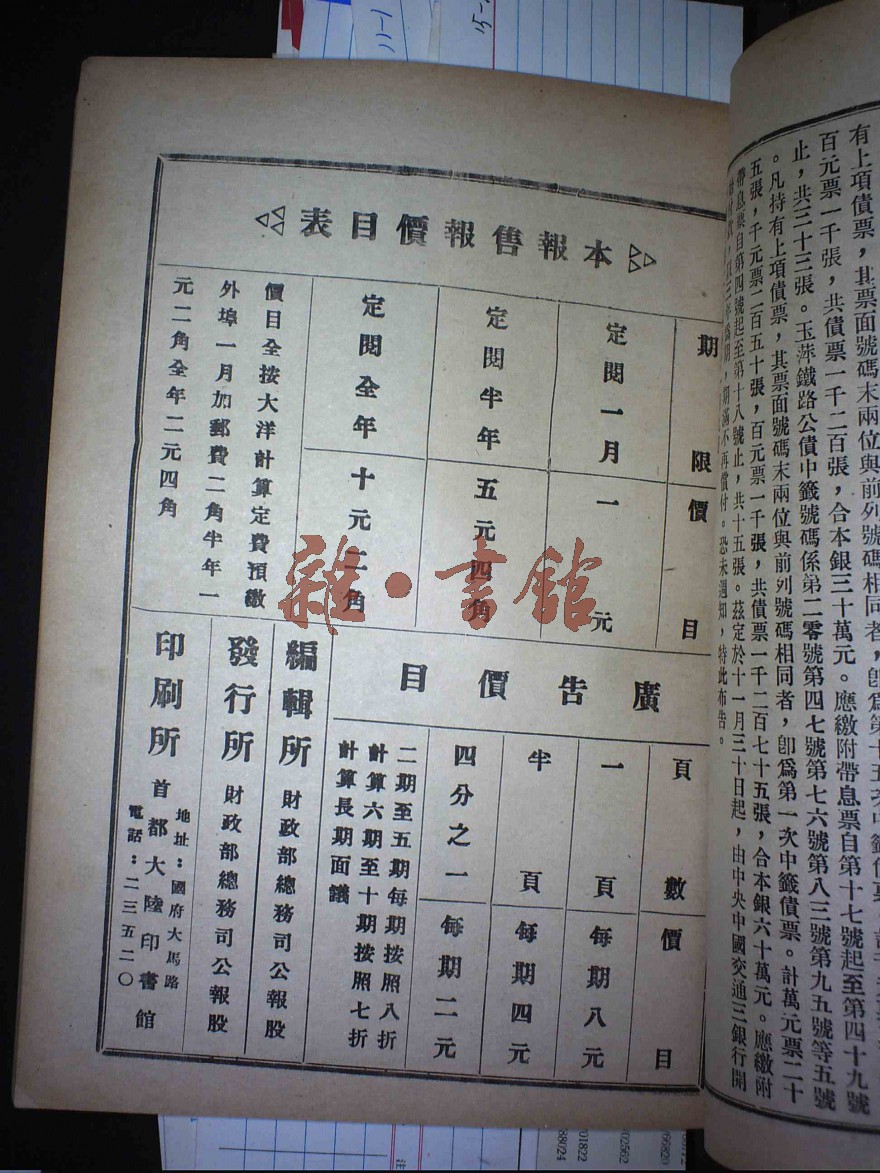 有上項債票,其票面號碼末兩位與前列號碼相同者,卽爲第十五次中籤債票
百元票一千張,共債票一千二百張,合本銀三十萬元。應繳附帶息票自第十七號起至第四十九號
止,共三十三張。玉萍鐵路公債中籤號碼係第二零號第四七號第七六號第八三號第九五號等五號
。凡持有上項債票,其票面號碼末兩位與前列號碼相同者,卽爲第一次中籤債票。計萬元票二十
五張,千元票二百五十張,百元票一千張,共債票一千二百七十五張,合本銀六十萬元。應繳附
帶息票自第四號起至第十八號止,共十五張。茲定於十一月三十日起,由中央中國交通三銀行開
期滿不再償付。恐未週知,特此布告。
本報售報價目表
期限 價目
定閱一月 一元
定閱半年 五元四角
定閱全年 十元二角
價目全按大洋計算定費預繳
外埠一月加郵費二角半年一
元二角全年二元四角
廣告價目
頁數 價目
一頁 每期八元
半頁 每期四元
四分之一 每期二元
二期至五期每期按照八折
計算六期至十期按照七折
計算長期面議
編輯所 財政部總務司公報股
發行所 財政部總務司公報股
印刷所 首都大陸印書館
地址:國府大馬路
電話:二三五二〇
雜·書館
11-1
15-
01822
88024
02562
66820